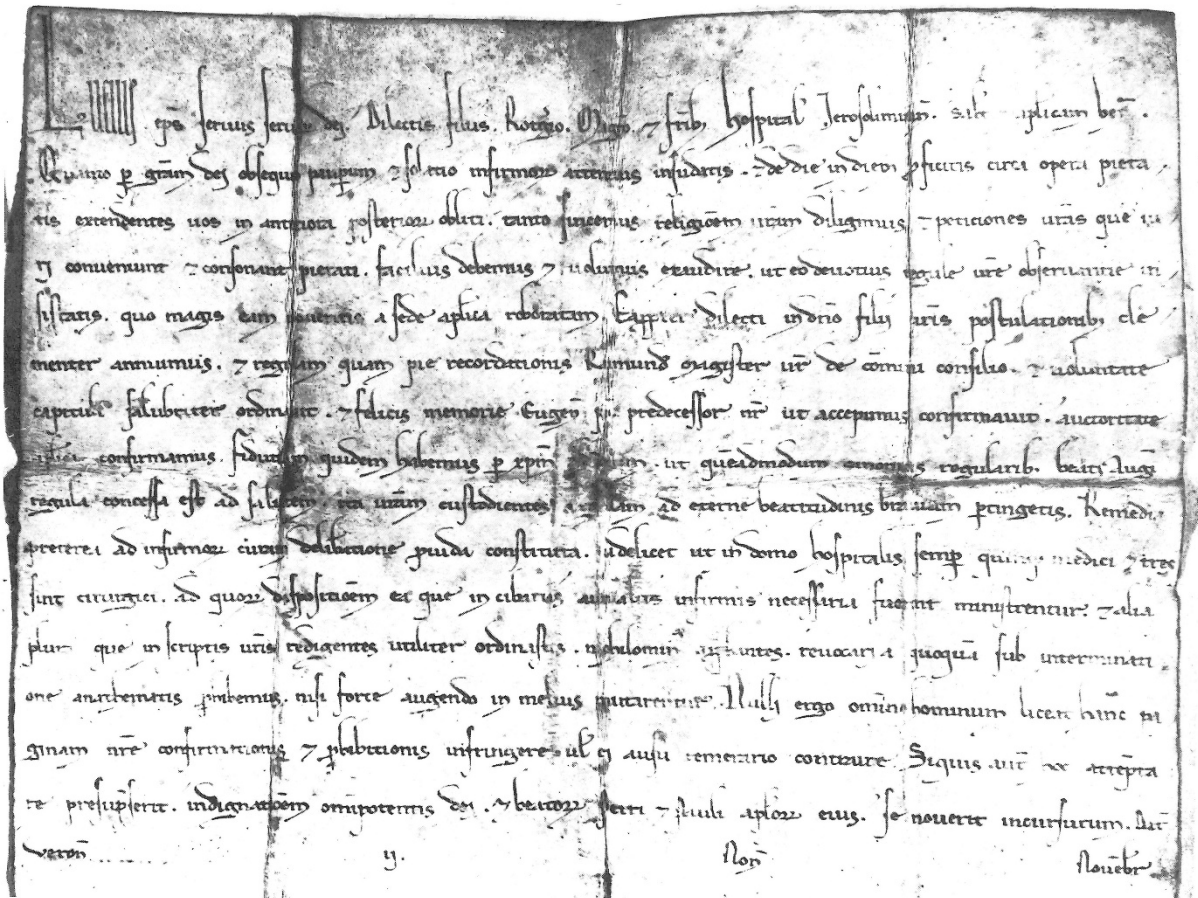 Lucius eps servus servor dei. Dilectis filiis. Rogerio. Magro. & frib, hospital Jerosolimitan. Sal & aplicam ben.
Quanto p gram dei obsequiis paupum & solatio infirmor attentius insudatis. & de die in diem pficitis circa opera pieta
tis extendentes vos in anteriora posterior obliti. tanto sincerius religioem vram diligimus & peticiones vras que iu
ri conveniunt & consonant pietati. facilius debemus & volumus exaudire. ut eo devotius regule vre observantie in
sistatis. quo magis eam noveritis a sede aplica roboratam. Eapprer dilecti in dno filii vris postulationib, cle
menter annuimus. & regulam quam pie recordationis Raimund magister vr de comuni consilio. & voluntate
capituli salubriter ordinavit. & felicis memorie Eugen pp predecessor nr ut accepimus confirmavit. auctoritate
aplica confirmamus. fiduciam quidem habemus p xpm. ut queadmodum canonicis regularib. beati Aug
regula concessa est ad salutem. ita vram custodientes ad eterne beatitudinis bravium ptingetis. Remedia
preterea ad infirmor curam deliberatione pvida constituta. videlicet ut in domo hospitalis semp quinq medici & tres
sint cirurgici. ad quor dispositioem ea que in cibariis aut aliis infirmis necessaria fuerint ministrentur. & alia
plura que in scriptis vris redigentes utiliter ordinastis. nichilomin approbantes. revocari a quoqua sub interminati
one anathematis phibemus. nisi forte augendo in melius mutarentur. Nulli ergo omnino hominum liceat hanc pa
ginam nre confirmationis & phibitionis infringere. vel ei ausu temerario contraire. Siquis aut attempta
re presupserit. indignatioem omipotentis dei. & beator Petri & Pauli aplor eius. se noverit incursurum. Dat
veron ij. Non Novebr